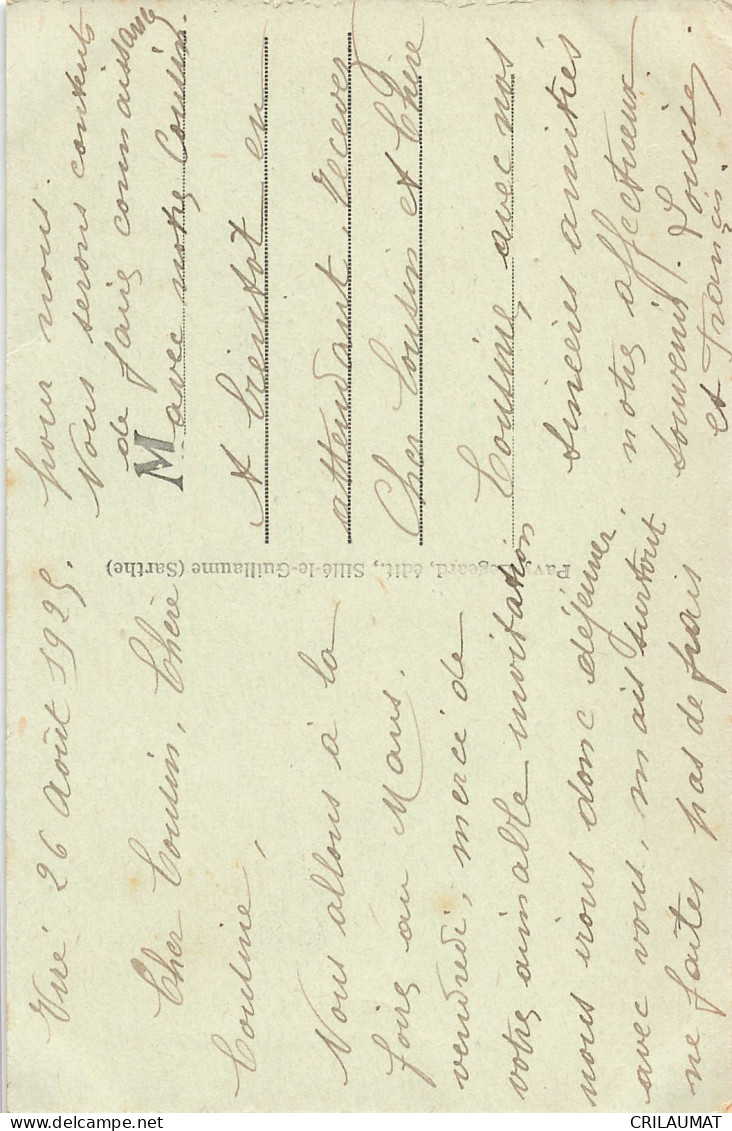 Viré 26 Août 1925.
Cher Cousin, Chère
Cousine,
Nous allons à la
foire au Mans.
vendredi, merci de
votre aimable invitation
nous irons donc déjeuner
avec vous, mais surtout
ne faites pas de frais
pour nous.
Nous serons contents
de faire connaissance
avec notre Cousin.
A bientôt en
attendant recevez
Cher Cousin et Chère
Cousine, avec nos
sincères amitiés
notre affectueux
souvenir. Louise,
et Francis.
M
édit., Sillé-le-Guillaume (Sarthe)
delcampe.net
CRILAUMAT